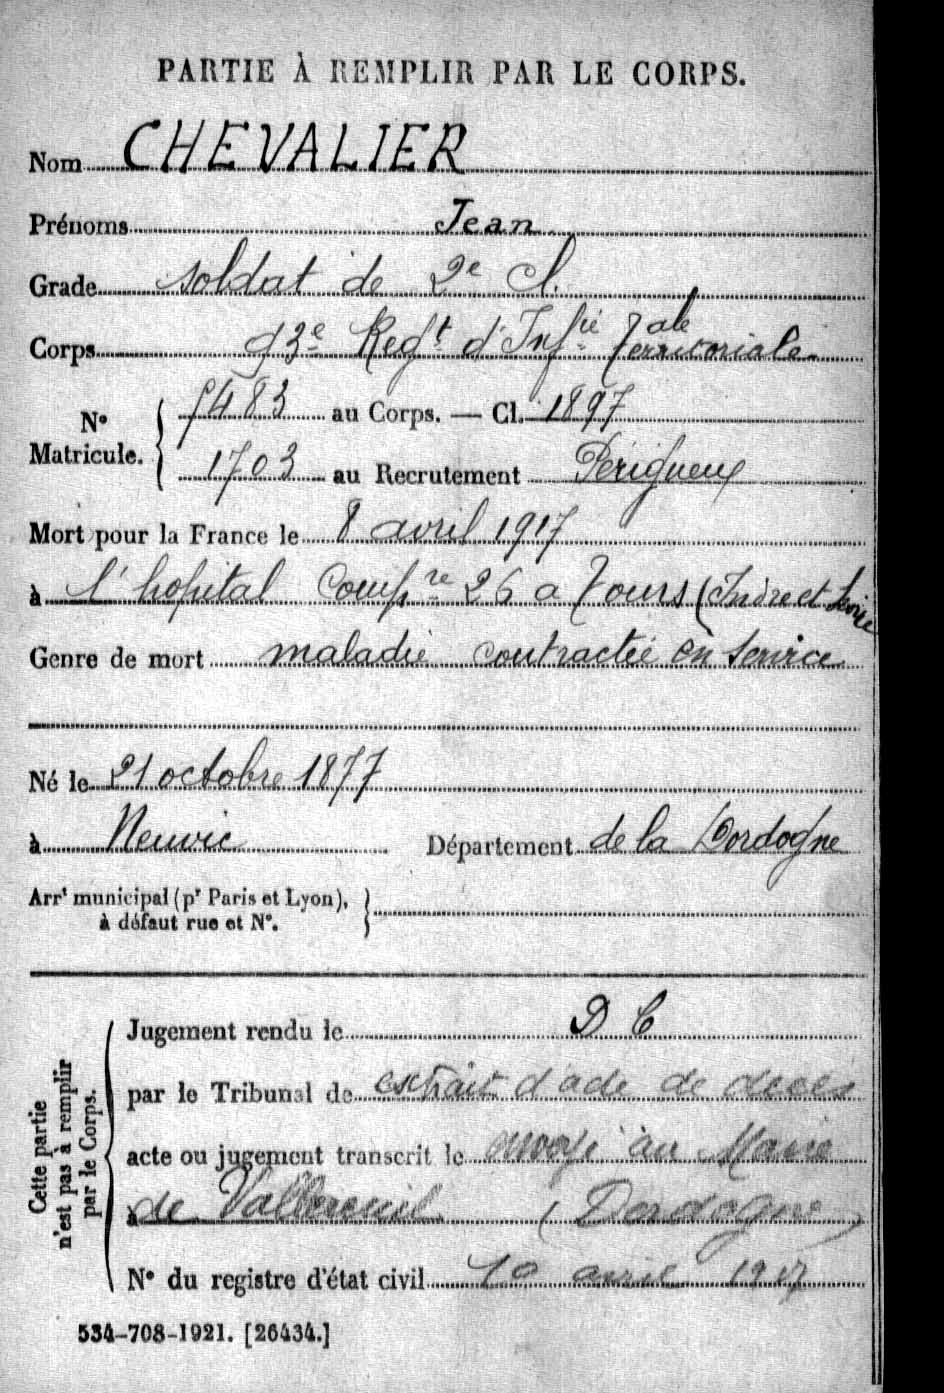 PARTIE À REMPLIR PAR LE CORPS.
Nom CHEVALIER
Prénoms Jean
Grade soldat de 2e cl.
Corps 93e Regt d'Infie Tale Territoriale
No Matricule. { 5483 au Corps. — Cl. 1897
1703 au Recrutement Périgueux
Mort pour la France le 8 avril 1917
à l'hopital Compre 26 a Tours (Indre et Loire
Genre de mort maladie contractée en service
Né le 21 octobre 1877
à Neuvic Département de la Dordogne
Arrt municipal (pr Paris et Lyon), }
à défaut rue et No.
Cette partie n'est pas à remplir par le Corps.
Jugement rendu le D C
par le Tribunal de extrait d'acte de décès
acte ou jugement transcrit le envoyé au Maire
à de Vallereuil (Dordogne)
No du registre d'état civil 10 avril 1917
534-708-1921. [26434.]